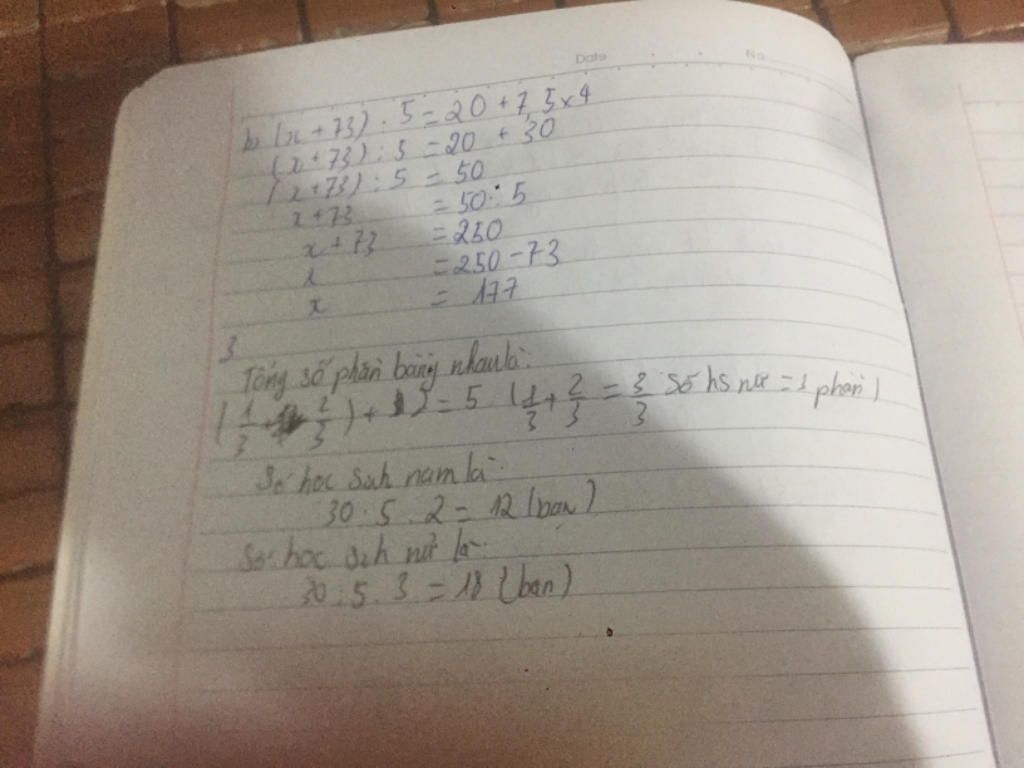 Date No
b) (x + 73) : 5 = 20 + 7,5 x 4
(x + 73) : 5 = 20 + 30
(x + 73) : 5 = 50
x + 73 = 50 . 5
x + 73 = 250
x = 250 - 73
x = 177
3
Tổng số phần bằng nhau là:
( 1/3 + 2/3 ) + ) = 5 ( 1/3 + 2/3 = 3/3 số hs nữ = 3 phần )
Số học sinh nam là:
30 : 5 . 2 = 12 (bạn)
Số học sinh nữ là:
30 : 5 . 3 = 18 (bạn)